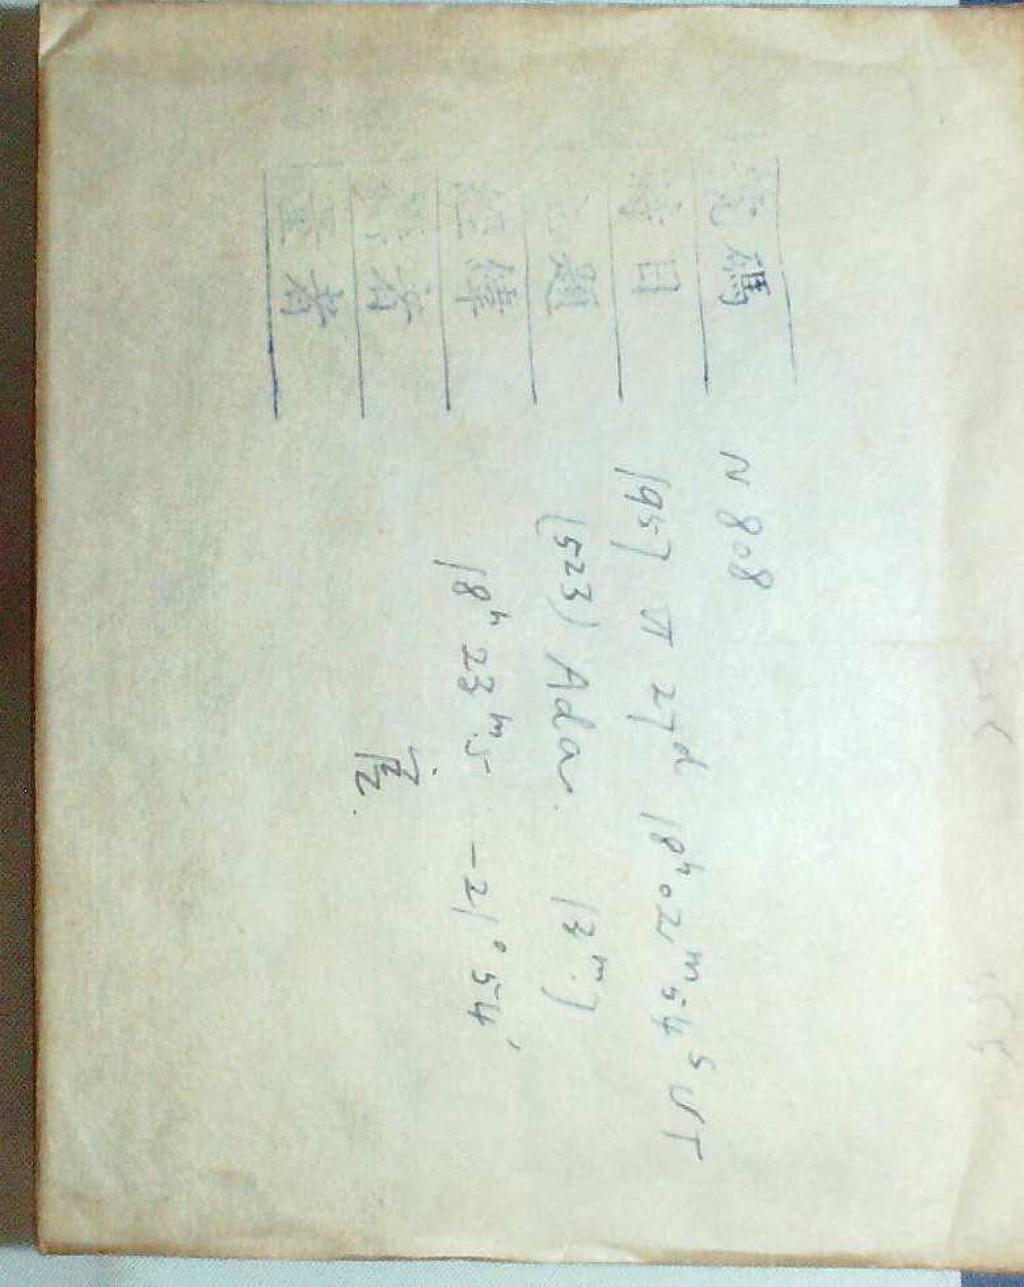 碼 N 808
時日 1957 VI 27ᵈ 18ʰ02ᵐ54ˢ UT
題 (523) Ada. 13ᵐ.)
經緯 18ʰ 23ᵐ.5 -21°54'
者
量者